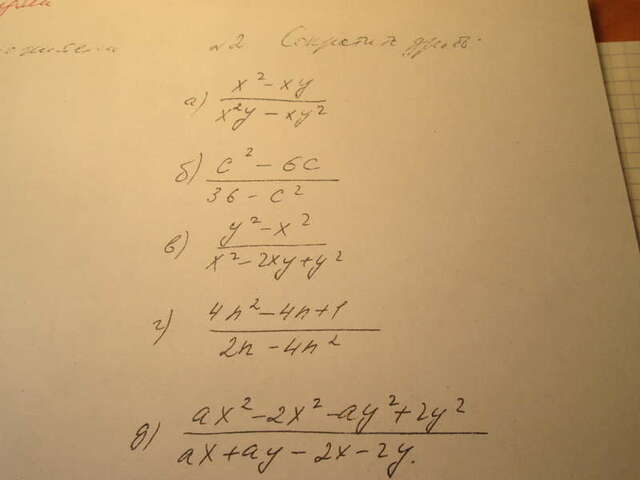 №2 Сократить дробь.
а) x² - xy
x²y - xy²
б) c² - 6c
36 - c²
в) y² - x²
x² - 2xy + y²
г) 4n² - 4n + 1
2n - 4n²
д) ax² - 2x² - ay² + 2y²
ax + ay - 2x - 2y.